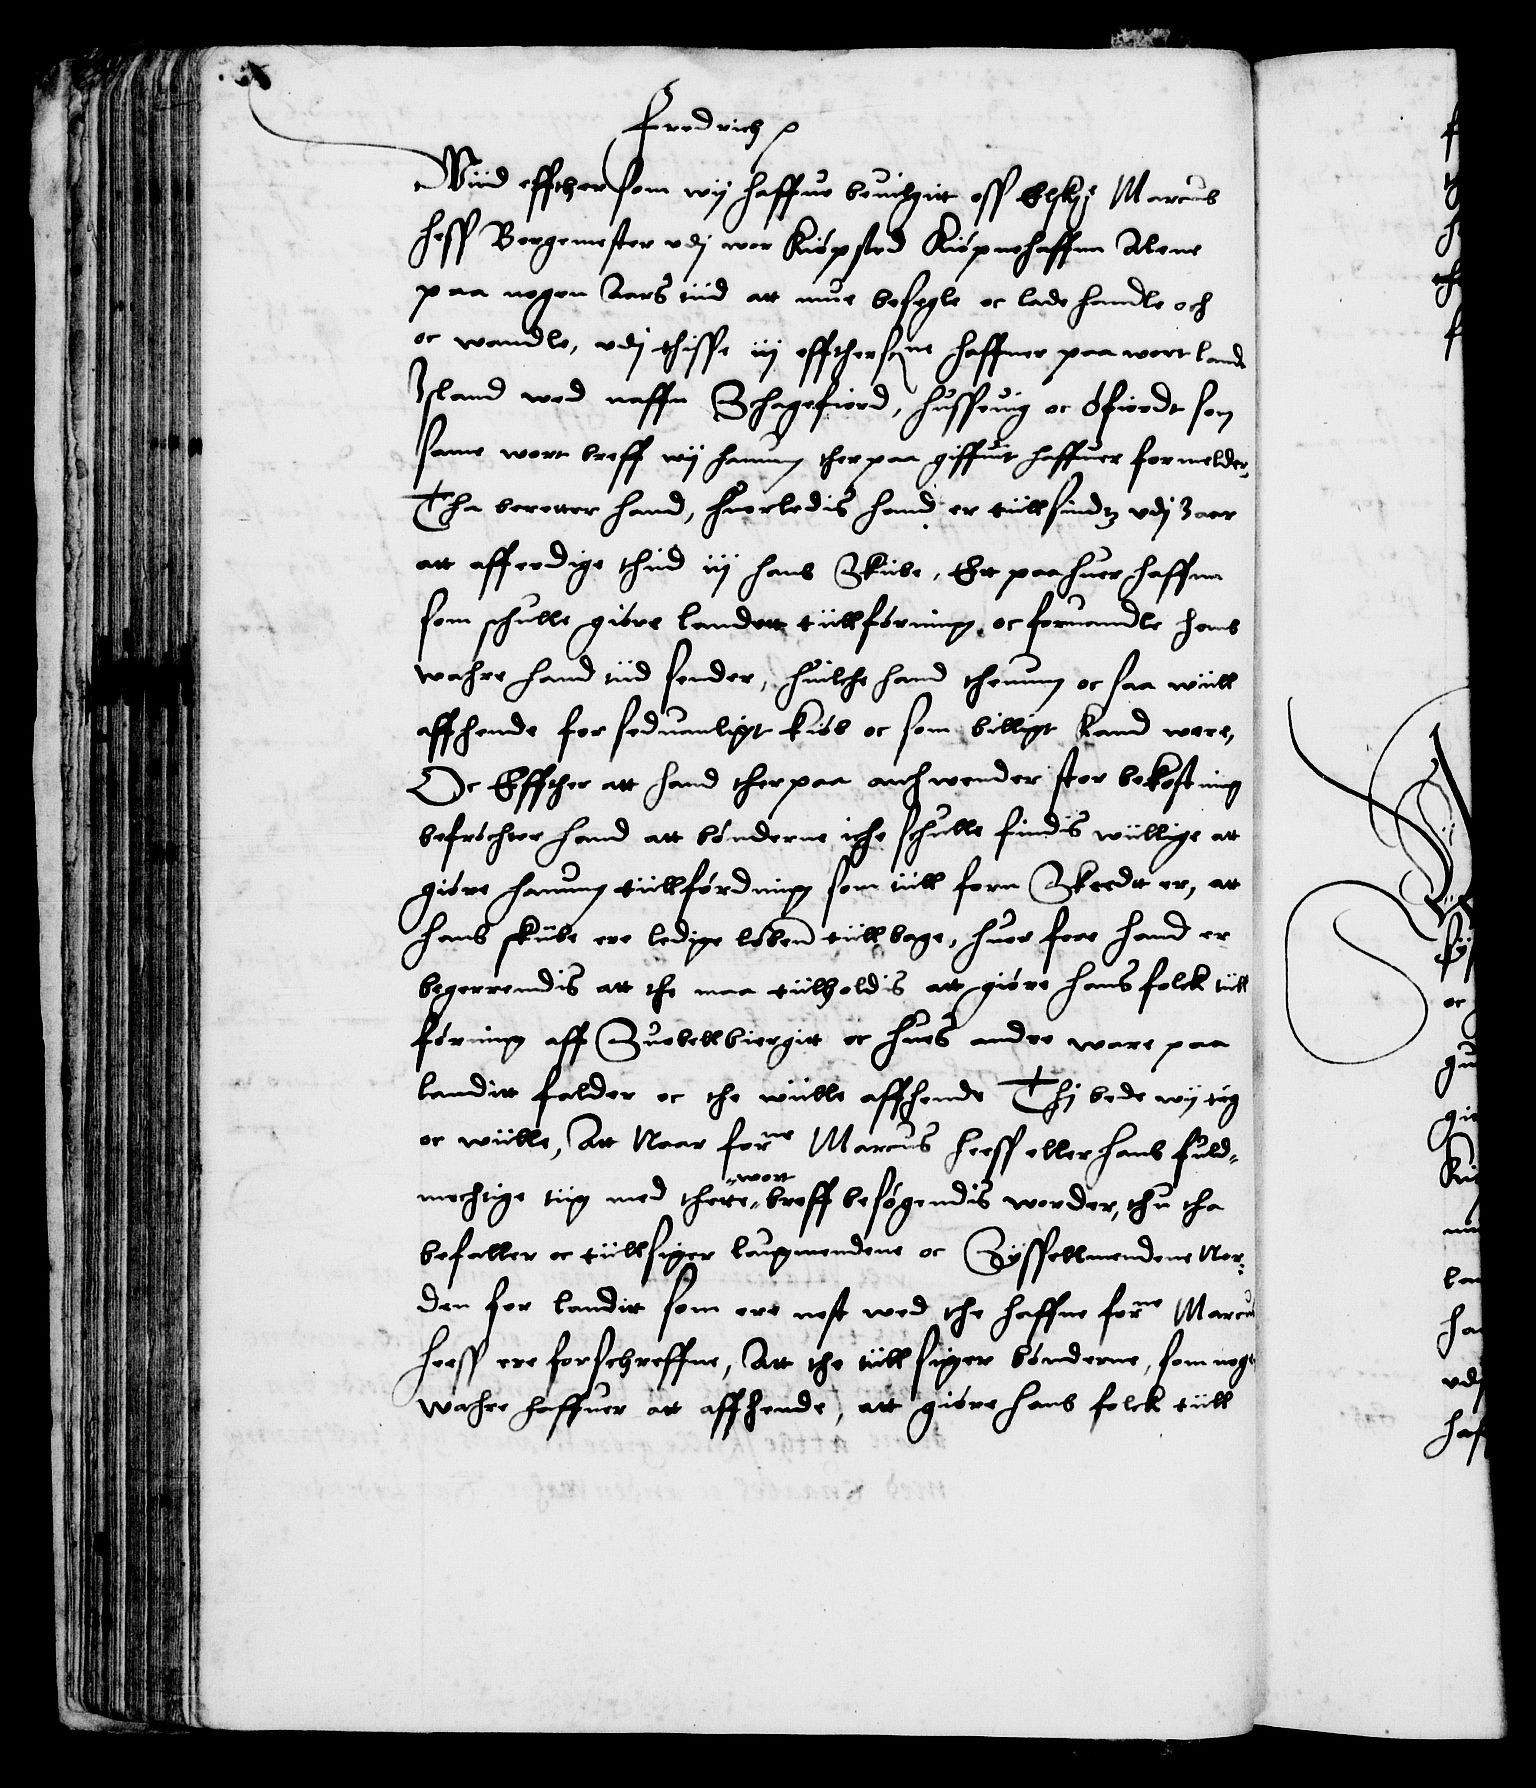 Fredrich p
Wiid effther som wij haffue beuilgitt oss Elskℯ Marcus
Hess Borgemester vdj wor Kiøpsted Kiøpnehaffnn Alene
paa nogen Aars tiid att mue besegle oc lade handle och
oc wandle, vdj thisse iij effthersne haffner paa wort land
Island wed naffn Schagefiord, Husseuig oc Øfiordt som
same wort breff wij hanum ther paa giffuit haffuer formelder,
Tha beretter hand, huorledis hand er tiillsindtz vdj Jaar
att afferdige thiid iij hans Skiibe, Ett paa huer haffnn
som schulle giøre landett tiillføring oc foruandle hans
wahre hand tiid sender, huilche hand thenum oc saa wiill
affhende for seduanligt kiøb oc som billigt kand were,
Oc Effther att hand ther paa anhwender stor bekosting
befrøchter hand att bønderne iche schulle findis wiillige att
giøre hanum tiillførdning som tiill forn Skeedt er, att
hans skiibe ere ledige løben tiillbage, huor fore hand er
begerrendis att the maa tiilholdis att giøre hans folck tiill
føring aff Suobellbiergitt oc hues andre ware paa
landitt falder oc the wiille affhende Thj bede wij tig
oc wiille, Att Naar forne Marcus Hess eller hans fuld-
mechtige tiig med there wort breff besøgendis worder, thu tha
befaller oc tiillsiger laugmendene oc Sysselmendene Nor-
den for landitt som ere nest wed the haffne forne Marcus
Hess ere forschreffne, Att the tiillsiger bønderne, som noge
wahre haffuer att affhende, att giøre hans folck tiill